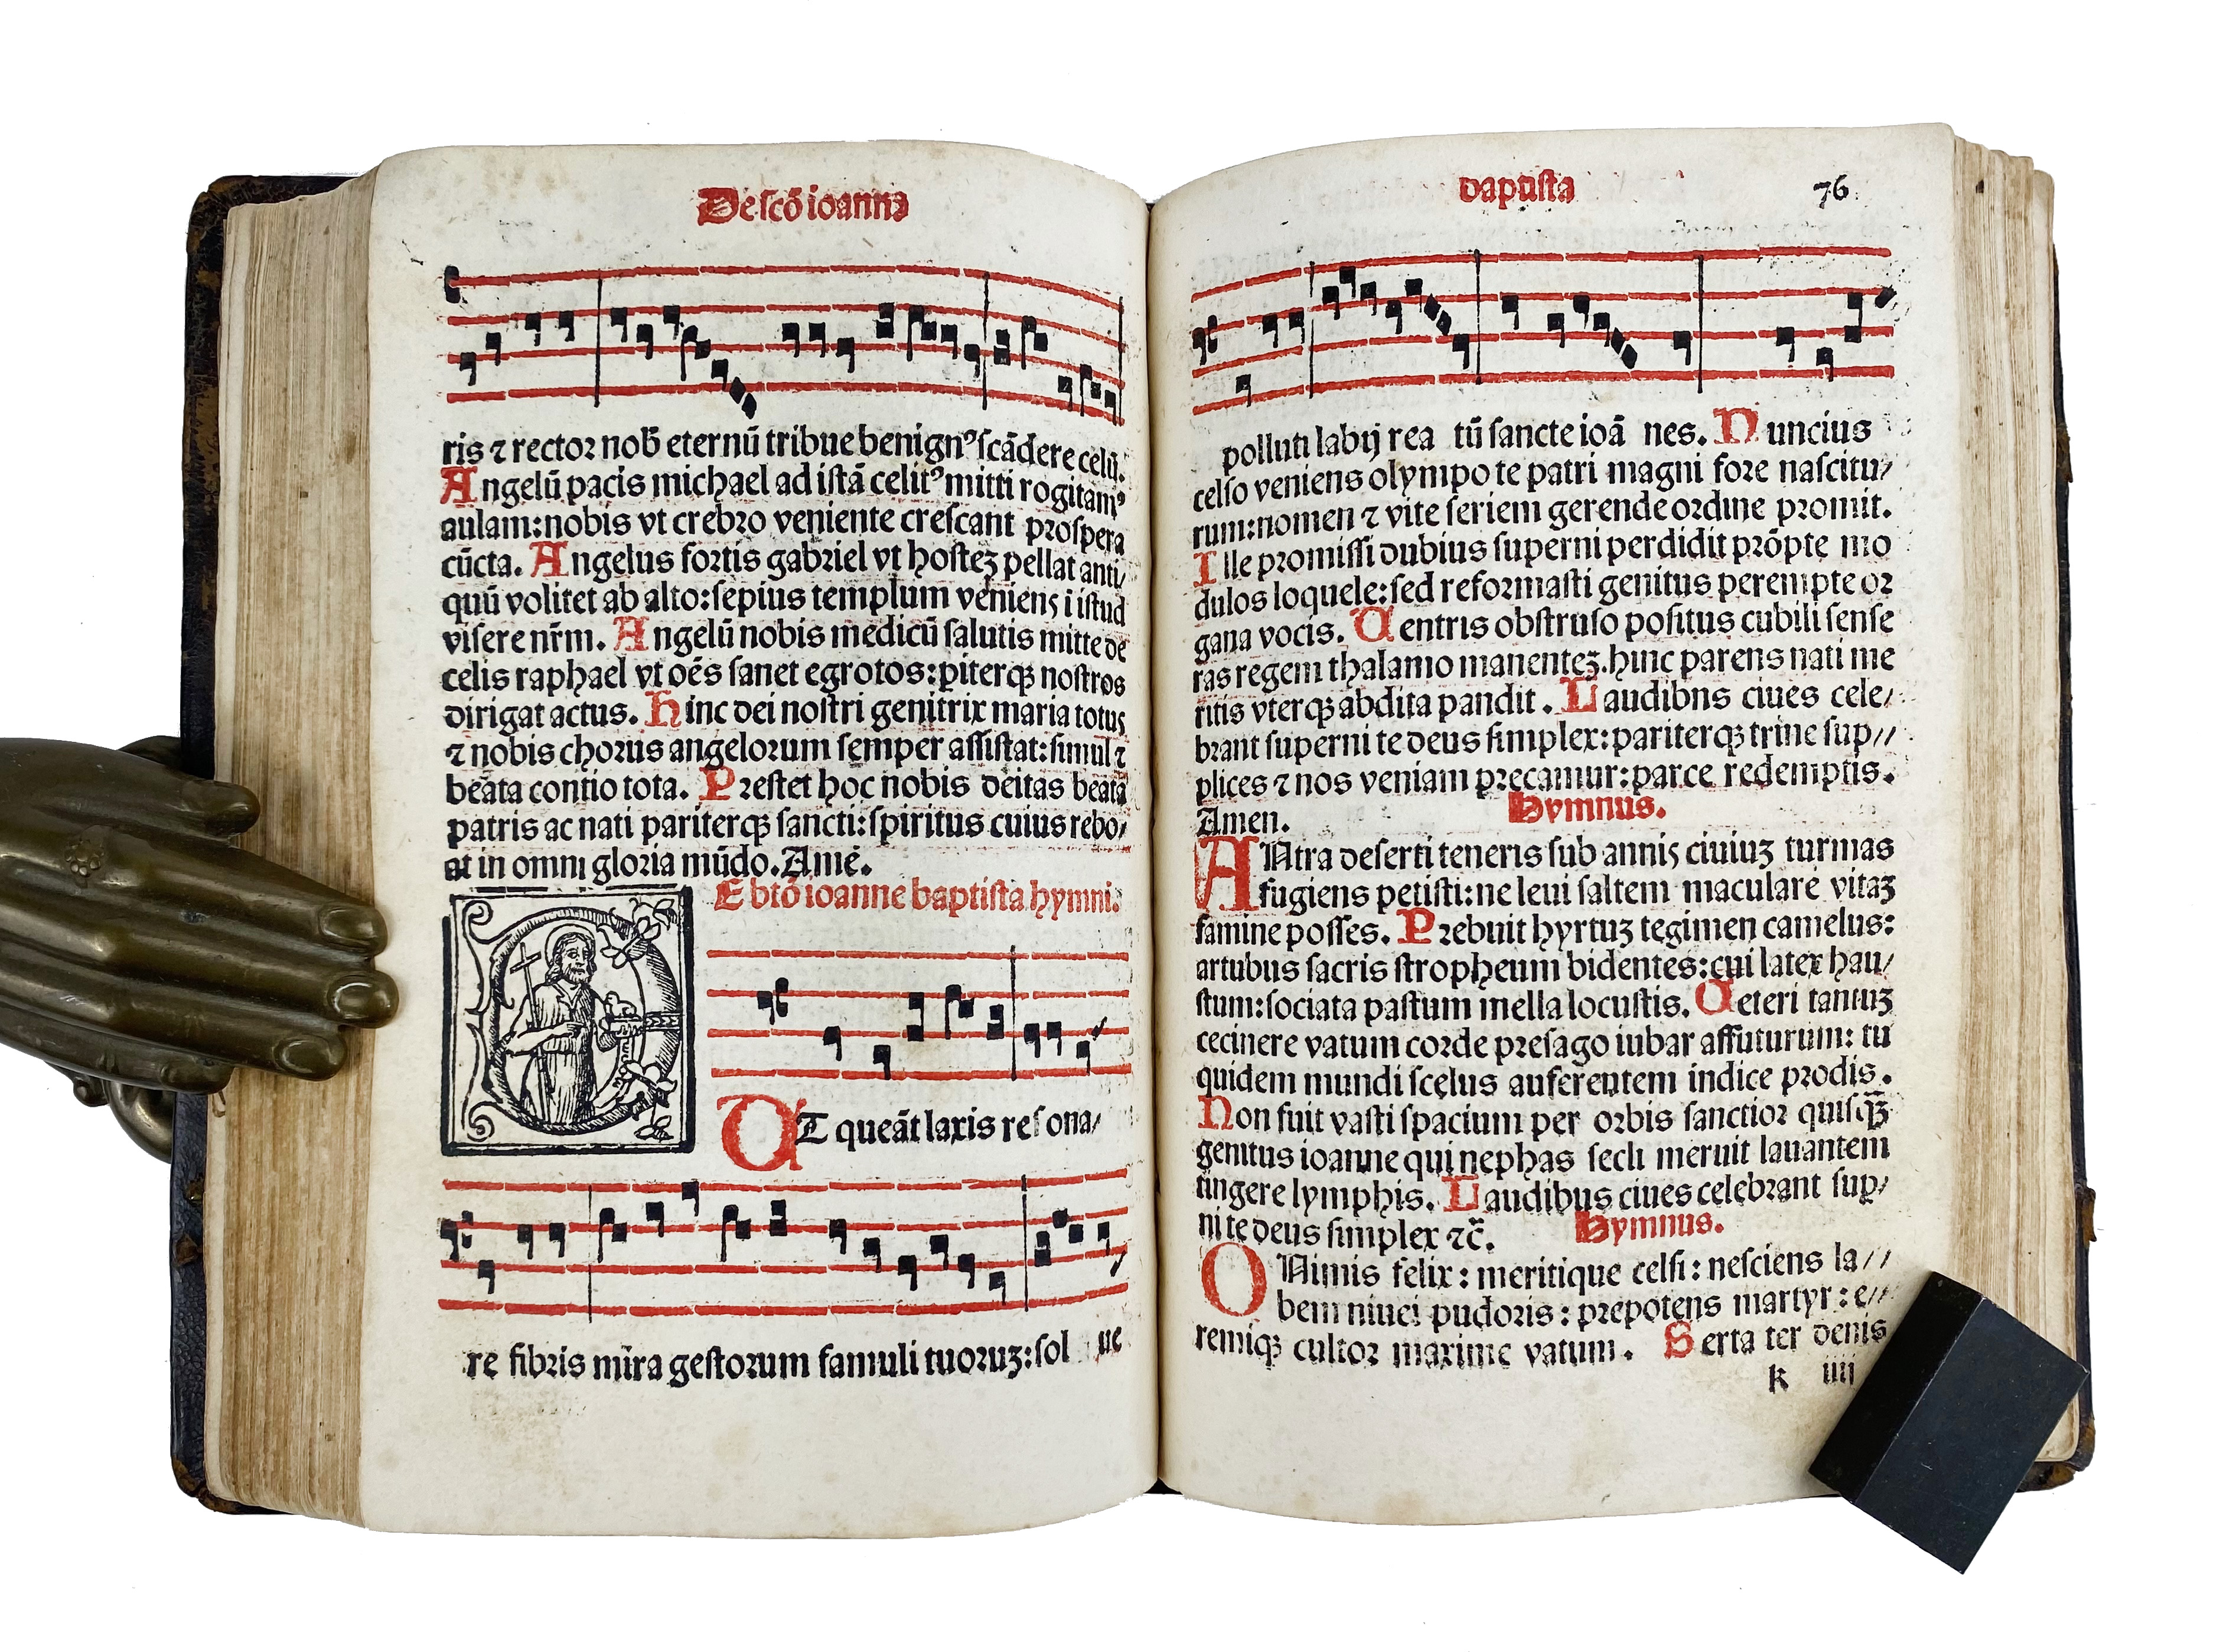 De scō ioanne
ris ⁊ rector nob̄ eternū tribue benignꝰ ſcādere celū.
Angelū pacis michael ad iſtā celitꝰ mitti rogitamꝰ
aulam:nobis vt crebꝛo veniente creſcant proſpera
cūcta. Angelus foꝛtis gabꝛiel vt hoſteꝫ pellat anti/
quū volitet ab alto:ſepius templum veniens i iſtud
viſere nr̄m. Angelū nobis medicū ſalutis mitte de
celis raphael vt oēs ſanet egrotos:piterqꝫ noſtros
dirigat actus. Hinc dei noſtri genitrix maria totus
⁊ nobis choꝛus angeloꝛum ſemper aſſiſtat:ſimul ⁊
beata contio tota. Pꝛeſtet hoc nobis deitas beata
patris ac nati pariterqꝫ ſancti:ſpiritus cuius rebo/
at in omni gloꝛia mūdo. Amē.
E btō ioanne baptiſta hymni.
UT queāt laxis reſona/
re fibꝛis mira geſtoꝛum famuli tuoꝛuꝫ:ſol ue
baptiſta 76
polluti labij rea tū ſancte ioā nes. Nuncius
celſo veniens olympo te patri magni foꝛe naſcitu/
rum:nomen ⁊ vite ſeriem gerende oꝛdine pꝛomit.
Ille pꝛomiſſi dubius ſuperni perdidit pꝛōpte mo
dulos loquele:ſed refoꝛmaſti genitus perempte oꝛ
gana vocis. Uentris obſtruſo poſitus cubili ſenſe
ras regem thalamo manenteꝫ.hinc parens nati me
ritis vterqꝫ abdita pandit. Laudibns ciues cele/
bꝛant ſuperni te deus ſimplex:pariterqꝫ trine ſup//
plices ⁊ nos veniam pꝛecamur:parce redemptis.
Amen. Hymnus.
ANtra deſerti teneris ſub annis ciuiuꝫ turmas
fugiens petiſti:ne leui ſaltem maculare vitaꝫ
famine poſſes. Pꝛebuit hyrtuꝫ tegimen camelus:
artubus ſacris ſtropheum bidentes:cui latex hau/
ſtum:ſociata paſtum mella locuſtis. Ceteri tantuꝫ
cecinere vatum coꝛde pꝛeſago iubar affuturum: tu
quidem mundi ſcelus auferentem indice pꝛodis.
Non fuit vaſti ſpacium per oꝛbis ſanctioꝛ quiſqꝫ
genitus ioanne qui nephas ſecli meruit lauantem
tingere lymphis. Laudibus ciues celebꝛant ſup/
ni te deus ſimplex ⁊c̄. Hymnus.
O Nimis felix: meritique celſi: neſciens la//
bem niuei pudoꝛis: pꝛepotens martyr: e//
remiqꝫ cultoꝛ maxime vatum. Serta ter denis
k iiij